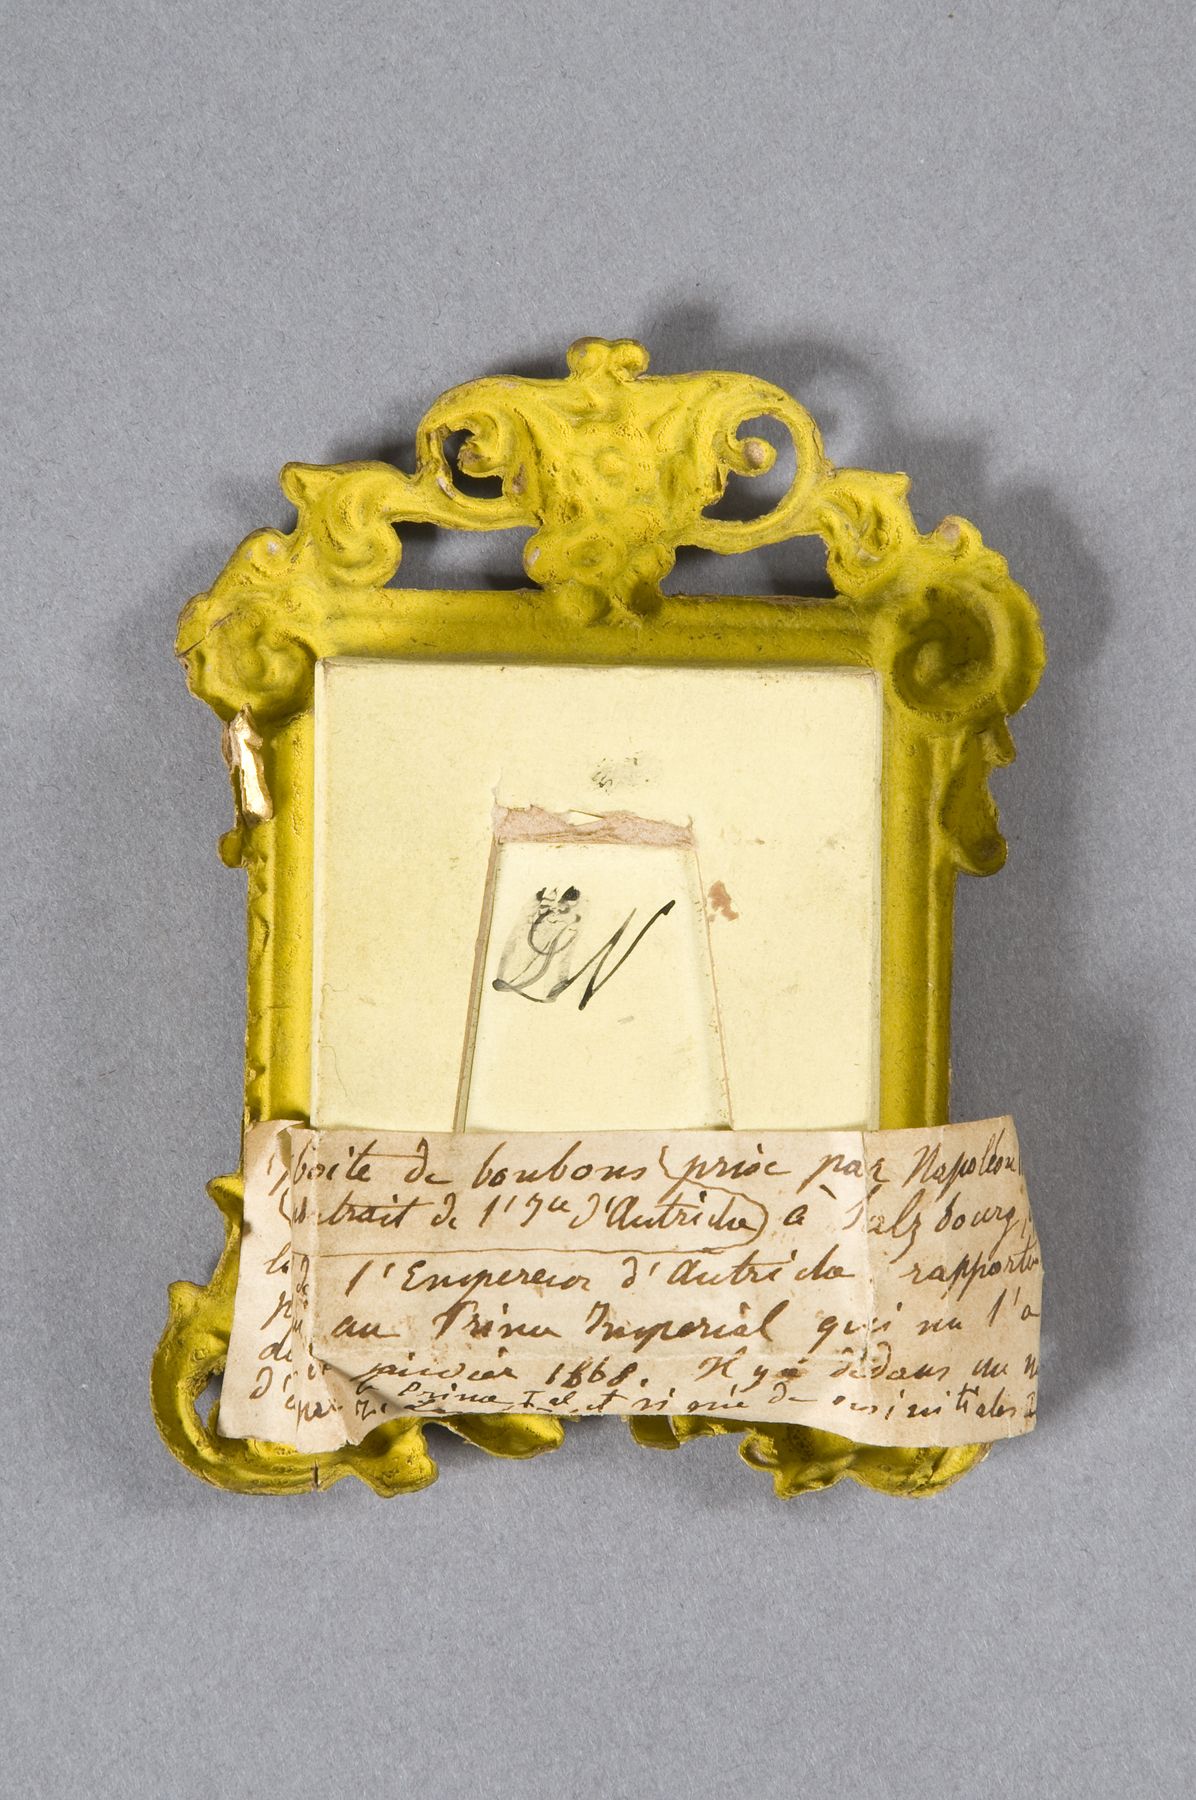 LN
boite de bonbons (prise par Napoléon
(portrait de l'Ice d'Autriche) à Salzbourg,
l'Empereur d'Autriche rapporté
au Prince Impérial qui me l'a
janvier 1868. Il y a dedans un
Prince Ial et signé de ses initiales